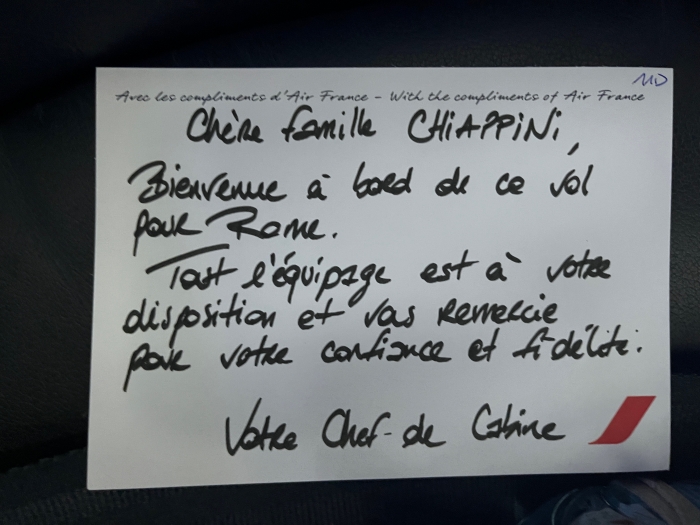 Avec les compliments d'Air France - With the compliments of Air France
Chère famille CHIAPPINI,
Bienvenue à bord de ce vol
pour Rome.
Tout l'équipage est à votre
disposition et vous remercie
pour votre confiance et fidélité.
Votre Chef-de Cabine